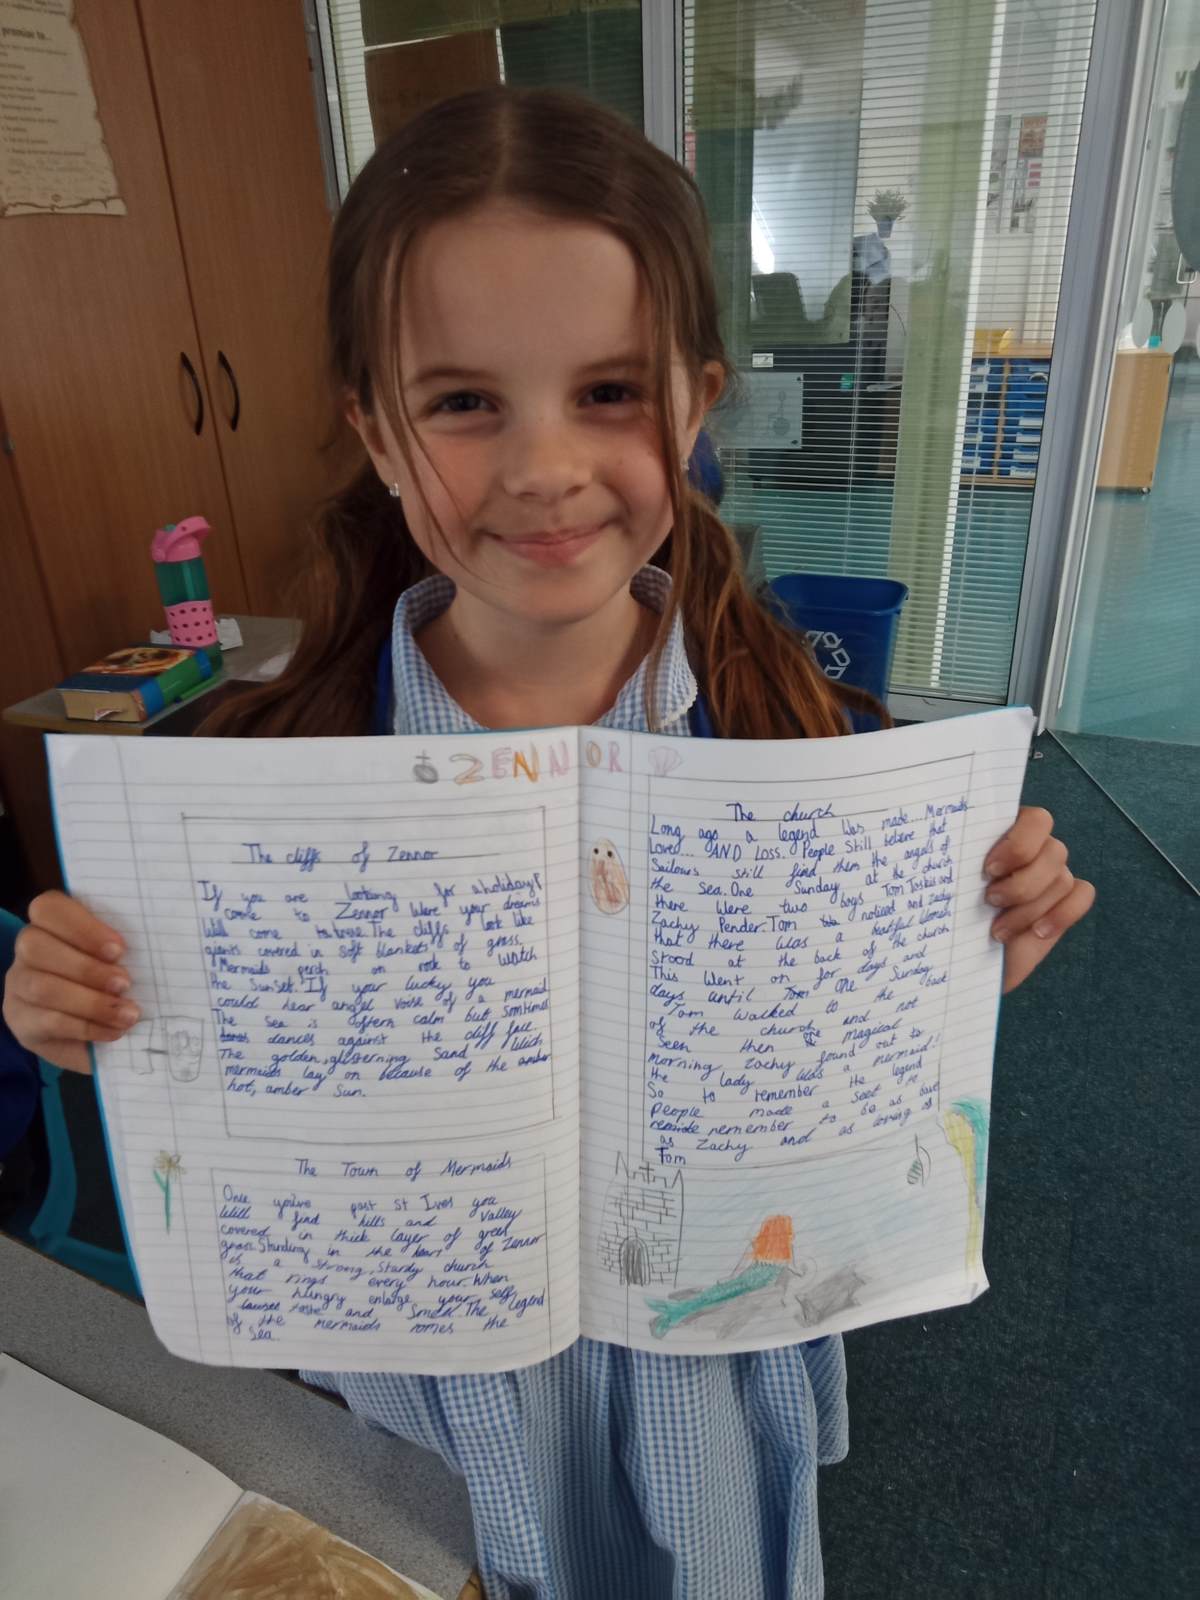 promise to...
ZENNOR
The cliffs of Zennor
If you are looking for a holiday?
come to Zennor were your dreams
Will come to true. The cliffs look like
giants covered in soft blankets of grass.
Mermaids perch on rock to watch
the sunset. If your lucky you
could hear angel voise of a mermaid
The sea is oftern calm but somtimes
dances against the cliff face.
The golden, glisterning sand Wich
mermaids lay on because of the amber
hot, amber sun.
The Town of Mermaids
Once you've past St Ives you
will find hills and valley
covered in thick layer of green
grass. Standing in the heart of Zennor
is a strong, sturdy church
that rings every hour. When
your hungry enlarge your self
taste and smell. The legend
of the mermaids romes the
Sea.
The church
Long ago a legend was made... Mermaids
Love... AND Loss. People still believe that
Sailours still find them the angels of
the sea. One Sunday at the church
there were two boys Tom Toskis and
Zachy Pender. Tom noticed and Zachy
that there was a beatiful women
stood at the back of the church
This went on for days and
days until Tom One Sunday
Tom walked to the back
of the church and not
seen then the magical
morning Zachy found out to
the lady was a mermaid!
So to remember the legend
people made a seat to
remember to be as brave
as Zachy and as loving as
Tom